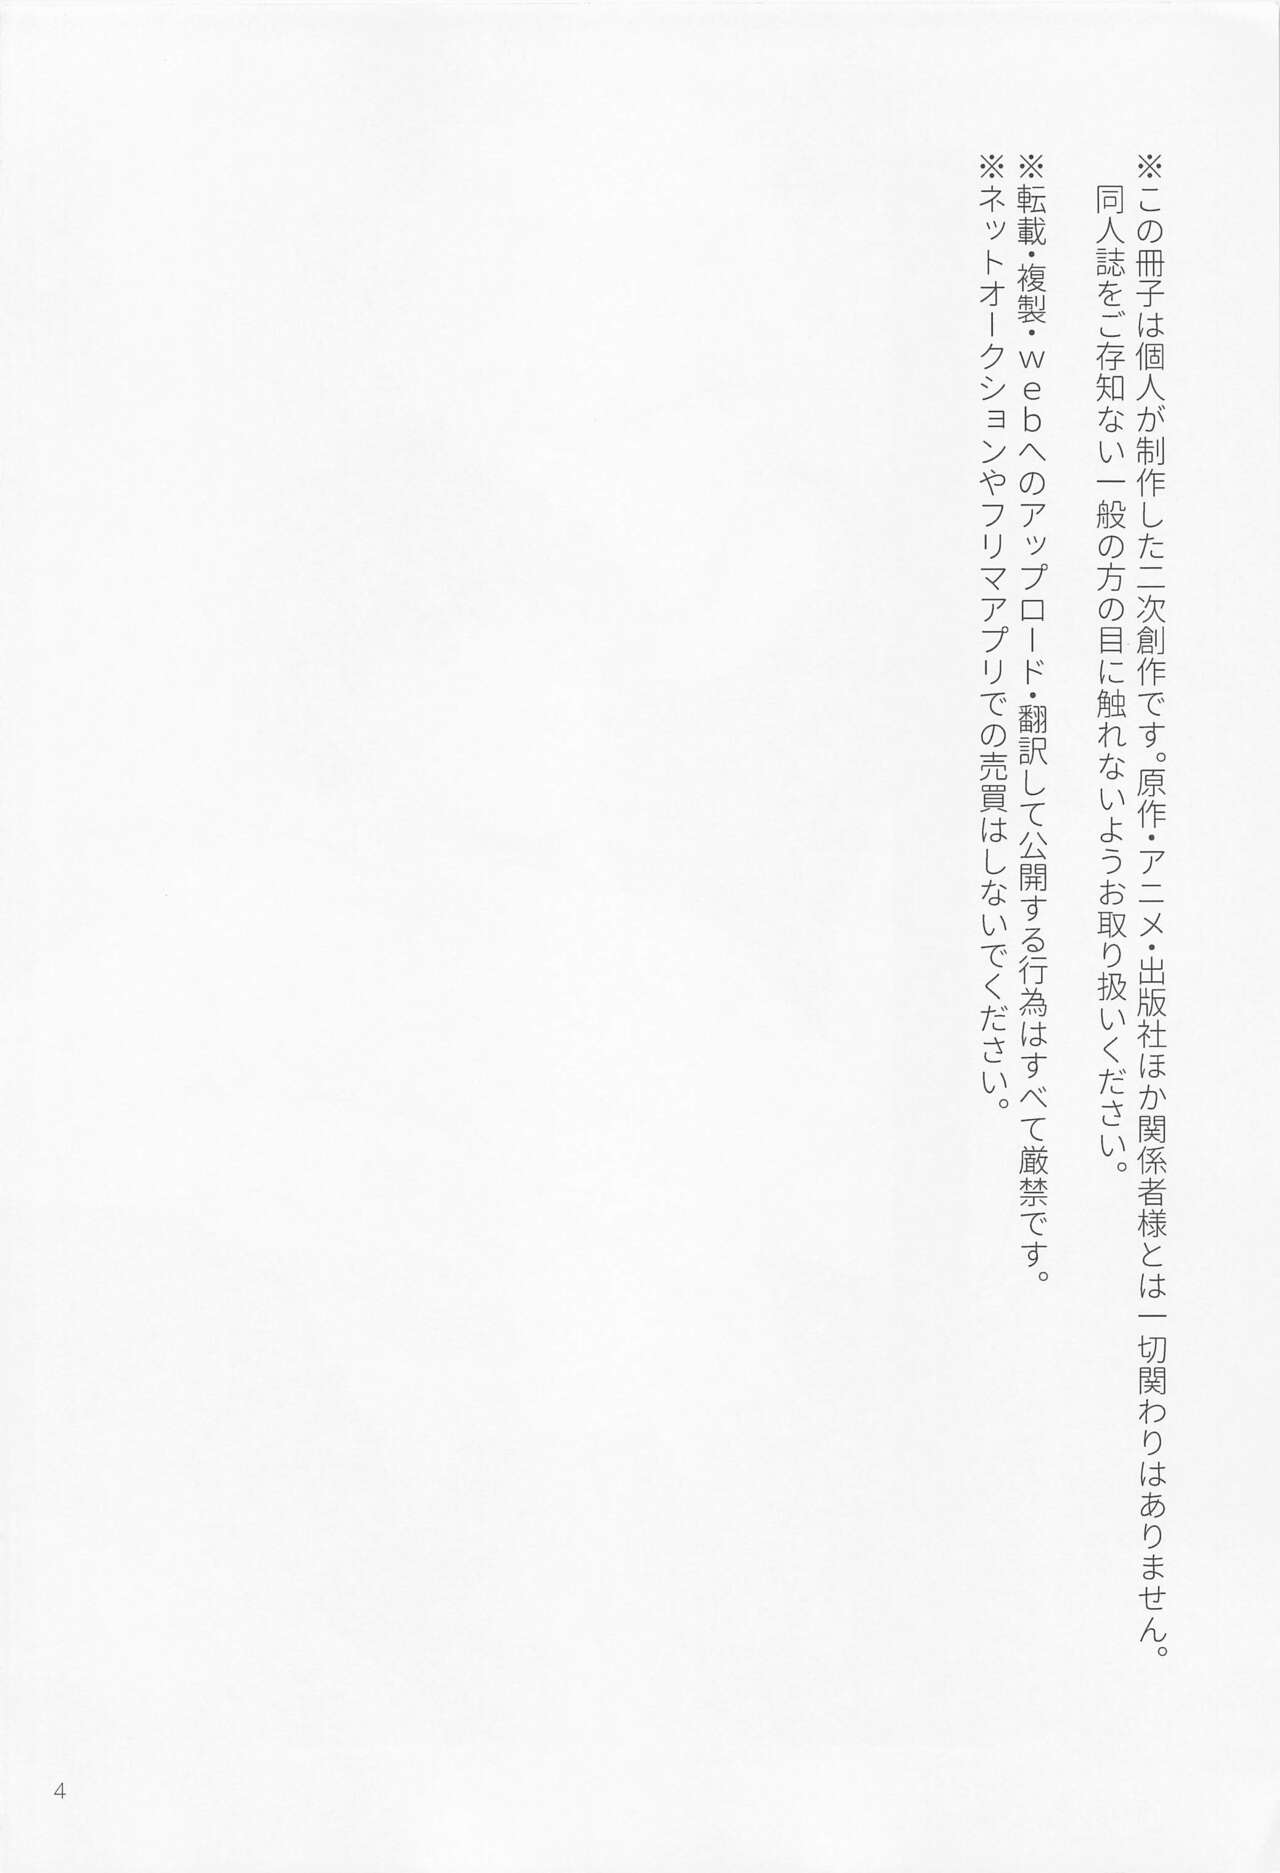 ※この冊子は個人が制作した二次創作です。原作・アニメ・出版社ほか関係者様とは一切関わりはありません。
同人誌をご存知ない一般の方の目に触れないようお取り扱いください。
※転載・複製・ｗｅｂへのアップロード・翻訳して公開する行為はすべて厳禁です。
※ネットオークションやフリマアプリでの売買はしないでください。
4